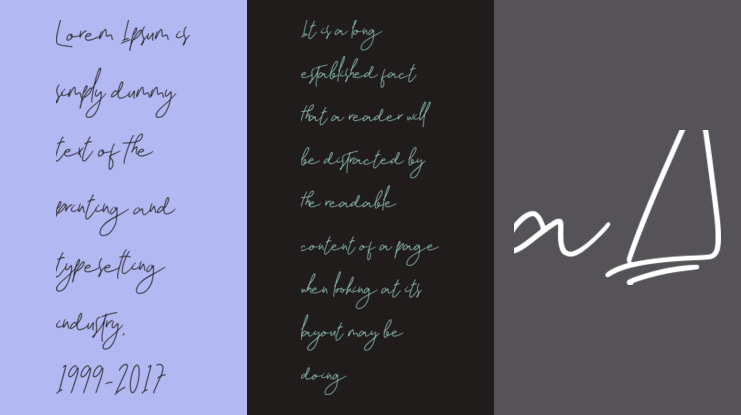 Lorem Ipsum is
simply dummy
text of the
printing and
typesetting
industry.
1999-2017
It is a long
established fact
that a reader will
be distracted by
the readable
content of a page
when looking at its
layout may be
doing
a A